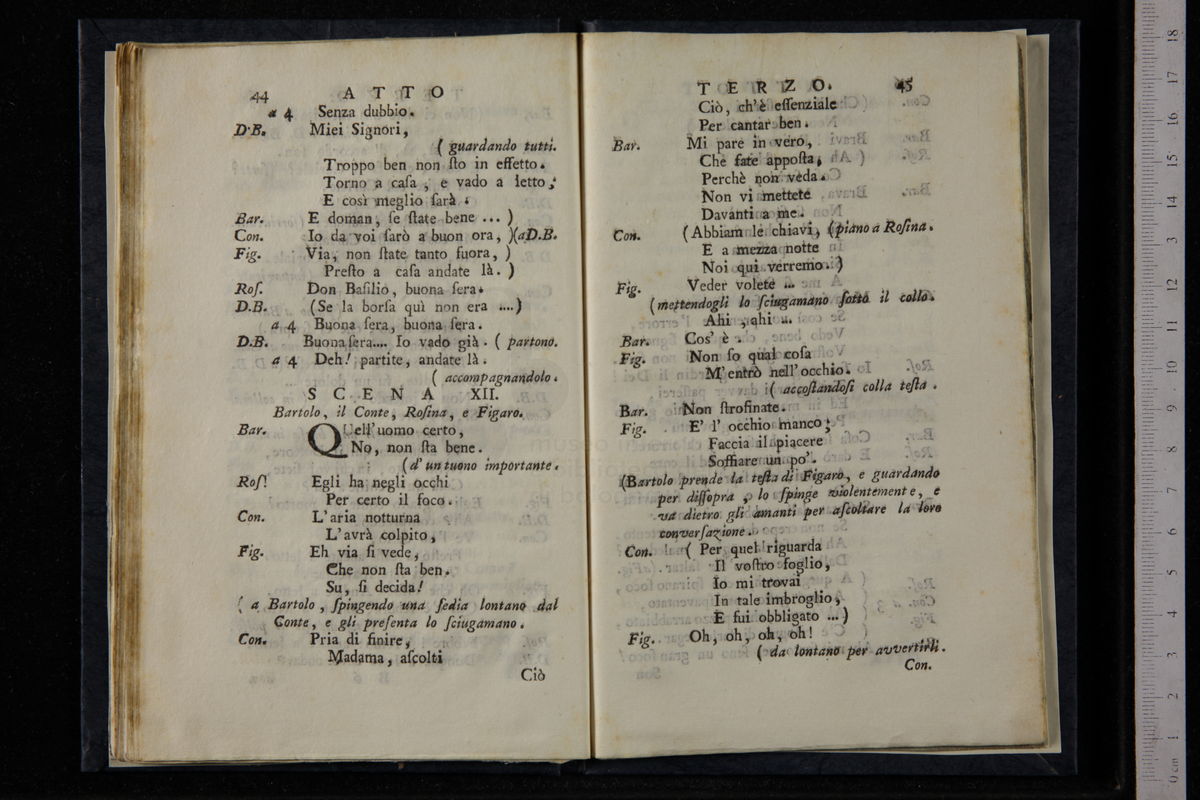 44 ATTO
a 4 Senza dubbio.
D.B. Miei Signori,
( guardando tutti.
Troppo ben non ſto in effetto.
Torno a caſa, e vado a letto;
E così meglio ſarà.
Bar. E doman, ſe ſtate bene ... )
Con. Io da voi ſarò a buon ora, )(a D.B.
Fig. Via, non ſtate tanto fuora, )
Preſto a caſa andate là. )
Roſ. Don Baſilio, buona ſera.
D.B. (Se la borſa quì non era ....)
a 4 Buona ſera, buona ſera.
D.B. Buona ſera.... Io vado già. ( partono.
a 4 Deh! partite, andate là.
( accompagnandolo.
SCENA XII.
Bartolo, il Conte, Roſina, e Figaro.
Bar. QUell'uomo certo,
No, non ſta bene.
( d' un tuono importante.
Roſ! Egli ha negli occhi
Per certo il foco.
Con. L'aria notturna
L'avrà colpito,
Fig. Eh via ſi vede,
Che non ſta ben.
Su, ſi decida!
( a Bartolo, ſpingendo una ſedia lontano dal
Conte, e gli preſenta lo ſciugamano.
Con. Pria di finire,
Madama, aſcolti
Ciò
TERZO. 45
Ciò, ch'è eſſenziale
Per cantar ben.
Bar. Mi pare in vero,
Che fate appoſta,
Perchè non veda.
Non vi mettete
Davanti a me.
Con. (Abbiam le chiavi, (piano a Roſina.
E a mezza notte
Noi qui verremo. )
Fig. Veder volete ...
(mettendogli lo ſciugamano ſotto il collo.
Ahi, ahi ...
Bar. Cos' è.
Fig. Non ſo qual coſa
M'entrò nell'occhio.
( accoſtandoſi colla teſta.
Bar. Non ſtrofinate.
Fig. E' l' occhio manco;
Faccia il piacere
Soffiare un po'.
(Bartolo prende la teſta di Figaro, e guardando
per diſſopra, lo ſpinge violentemente, e
va dietro gli amanti per aſcoltare la loro
converſazione.
Con. ( Per quel riguarda
Il voſtro foglio,
Io mi trovai
In tale imbroglio,
E fui obbligato ... )
Fig. Oh, oh, oh, oh!
( da lontano per avvertirli.
Con.